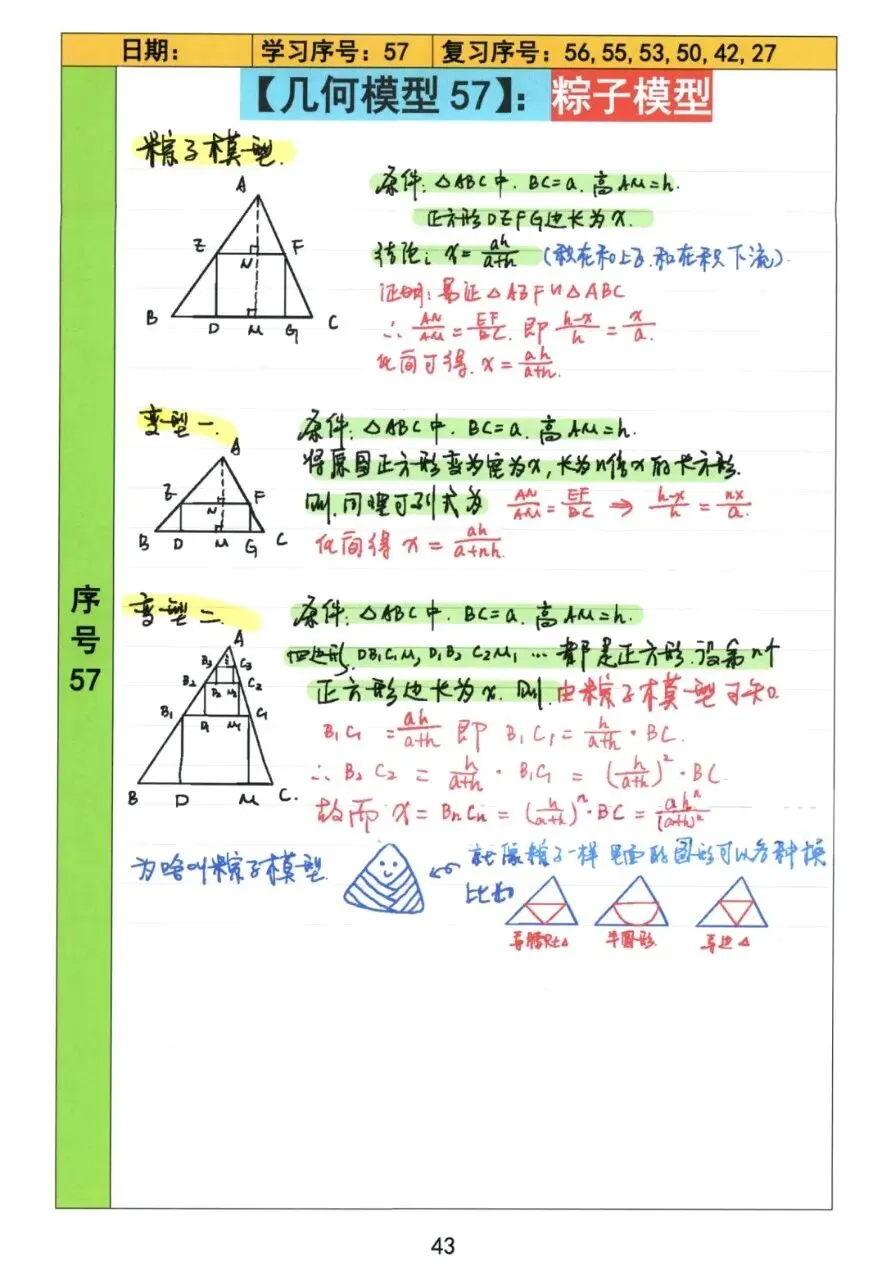 日期： 学习序号：57 复习序号：56,55,53,50,42,27
【几何模型57】：粽子模型
序号57
粽子模型.
条件：△ABC中. BC=a. 高AM=h.
正方形DEFG边长为x.
结论：x=ah/(a+h) (积在和上飞.和在积下流).
证明：易证△AEF∽△ABC
∴ AN/AM=EF/BC. 即 (h-x)/h=x/a.
化简可得. x=ah/(a+h).
A
E N F
B D M G C
变型一.
条件：△ABC中. BC=a. 高AM=h.
将原图正方形变为宽为x，长为n倍x的长方形.
则.同理可列式为 AN/AM=EF/BC ⇒ (h-x)/h=nx/a.
化简得 x=ah/(a+nh).
A
E N F
B D M G C
变型二.
条件：△ABC中. BC=a. 高AM=h.
四边形. DB₁C₁M, D₁B₂C₂M₁ … 都是正方形.设第n个
正方形边长为x. 则.由粽子模型可知
B₁C₁=ah/(a+h) 即 B₁C₁=h/(a+h)·BC.
∴ B₂C₂=h/(a+h)·B₁C₁=(h/(a+h))²·BC
故而 x=BnCn=(h/(a+h))ⁿ·BC=ahⁿ/(a+h)ⁿ
A
B₃ C₃
B₂ D₂ M₂ C₂
B₁ D₁ M₁ C₁
B D M C.
为啥叫粽子模型.
就像粽子一样 里面的图形可以各种换
比如
等腰Rt△ 半圆形. 等边△
43